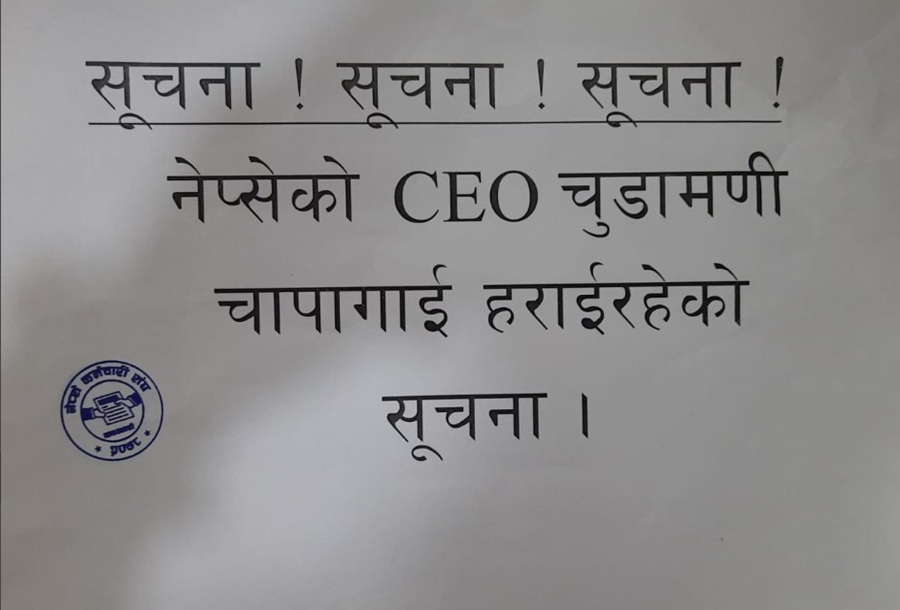 सूचना ! सूचना ! सूचना !
नेप्सेको CEO चुडामणी
चापागाई हराईरहेको
सूचना ।
नेप्से कर्मचारी संघ